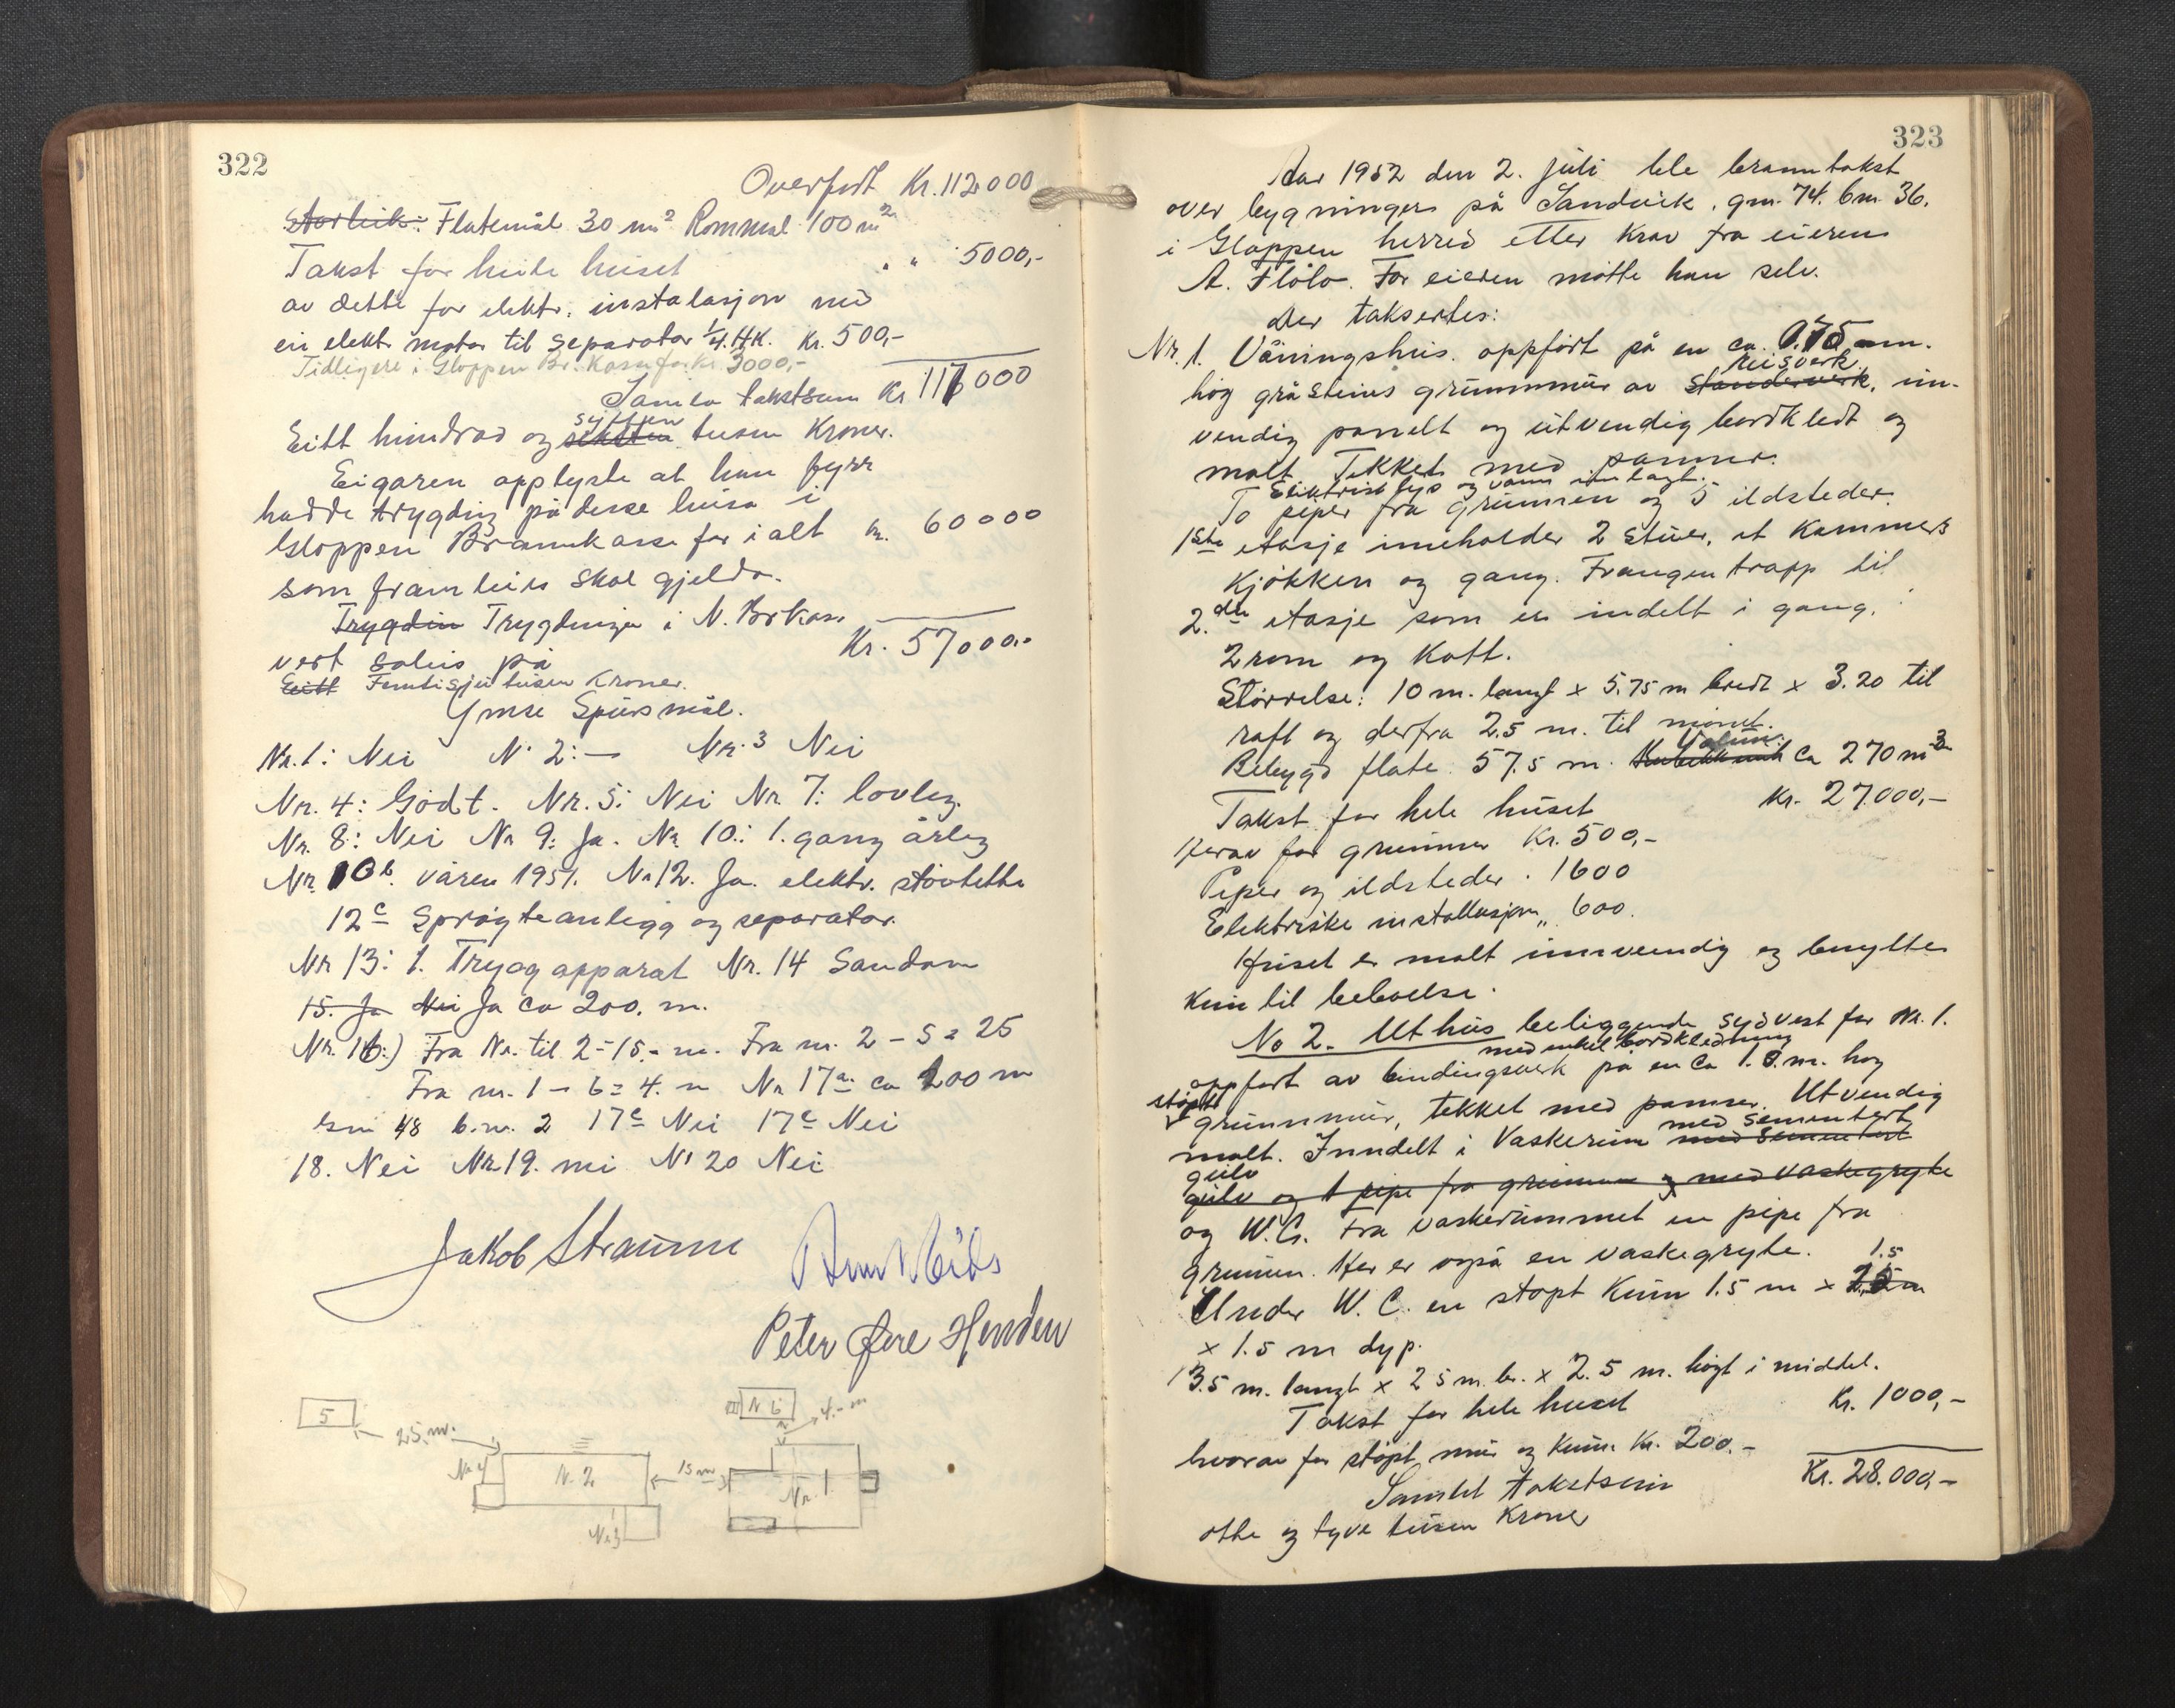 322
Overført Kr. 112000
Storleik: Flatemål 30 m² Rommål 100 m²
Takst for heile huset " " 5000,-
av dette for elektr. instalasjon med
ein elekt. motor til separator 1/4 HK. Kr. 500,-
Tidligere i Gloppen Br. Kasse for kr 3000,-
Samla takstsum Kr 117000
syttten
Eitt hundrad og seksten tusen Kroner.
Eigaren opplyste at han fyrr
hadde trygding på desse husa i
Gloppen Brannkasse for i alt kr. 60000
som framleies skal gjelda.
Trygdin Trygdinga i N. Brkas.
vert soleis på Kr. 57000.-
Eitt Femtisju tusen Kroner.
Ymse Spursmål.
Nr. 1: Nei N. 2: — Nr. 3 Nei
Nr. 4: Godt. Nr. 5: Nei Nr 7: lovleg.
Nr. 8: Nei Nr 9: Ja. Nr 10: 1. gang årleg
Nr. 10b. våren 1951. Nr 12. Ja. elektr. støvtette
12c Sprøyteanlegg og separator.
Nr 13: 1. Trygg apparat Nr. 14 Sandane
15. Ja Nei Ja ca 200. m.
Nr. 16.) Fra Nr. 1 til 2 = 15.- m. Fra nr. 2 - 5 = 25
Fra nr. 1 - 6 = 4. m Nr 17a ca 200 m
Gnr 48 b.nr. 2 17c Nei 17c Nei
18. Nei Nr 19. nei Nr 20 Nei
Jakob Straume
Peter Øvre Henden
5
25 m.
Nr 4
N. 2
Nr 3
15 m
N 6
4.- m
Nr. 1
323
Aar 1952 den 2. juli ble branntakst
over bygningers på Sandvik. gnr. 74. bnr 36.
i Gloppen herred etter krav fra eieren
A. Flølo. For eieren møtte han selv.
der taksertes:
Nr. 1. Våningshus. oppført på en ca. 0.75 m.
reisverk
høg gråsteins grunnmur av standerverk, inn-
vendig panelt og utvendig bordkledt og
malt. Tekket med panner.
Elektrisk lys og vann innlagt.
To piper fra grunnen og 5 ildsteder.
1ste etasje inneholder 2 stuer, et Kammers
Kjøkken og gang. Fra ngen trapp til
2.den etasje som er indelt i gang.
2 rom og Kott.
Størrelse: 10 m. langt x 5.75 m bredt x 3.20 til
raft og derfra 2,5 m. til mønet.
Volum.
Bebygd flate. 57.5 m. Kubikkmål Ca 270 m³
Takst for hele huset Kr. 27.000,-
Herav for grunnmur Kr. 500,-
Piper og ildsteder . 1600
Elektriske installasjon ,, 600.
Huset er malt innvendig og benyttes
Kun til beboelse.
No 2. Uthus beliggende sydvest for Nr. 1.
med enkel bordkledning
oppført av bindingsverk på en ca 1.0. m. høg
støpt
grunnmur, tekket med panner. Utvendig
med sementert
malt. Inndelt i Vaskerum med sementert
gulv
gulv og 1 pipe fra grunnen og med vaskegryte
og W.C. Fra vaskerummet en pipe fra
grunnen. Her er også en vaskegryte.
1.5
Under W.C. en støpt Kum 1.5 m x 2.5 m
x 1.5 m dyp.
3.5 m. langt x 2 5 m. br. x 2.5 m. høgt i middel.
Takst for hele huset Kr. 1000,-
hvorav for støpt mur og Kum. Kr. 200.-
Samlet takstsum Kr. 28.000,-
otte og tyve tusen Kroner